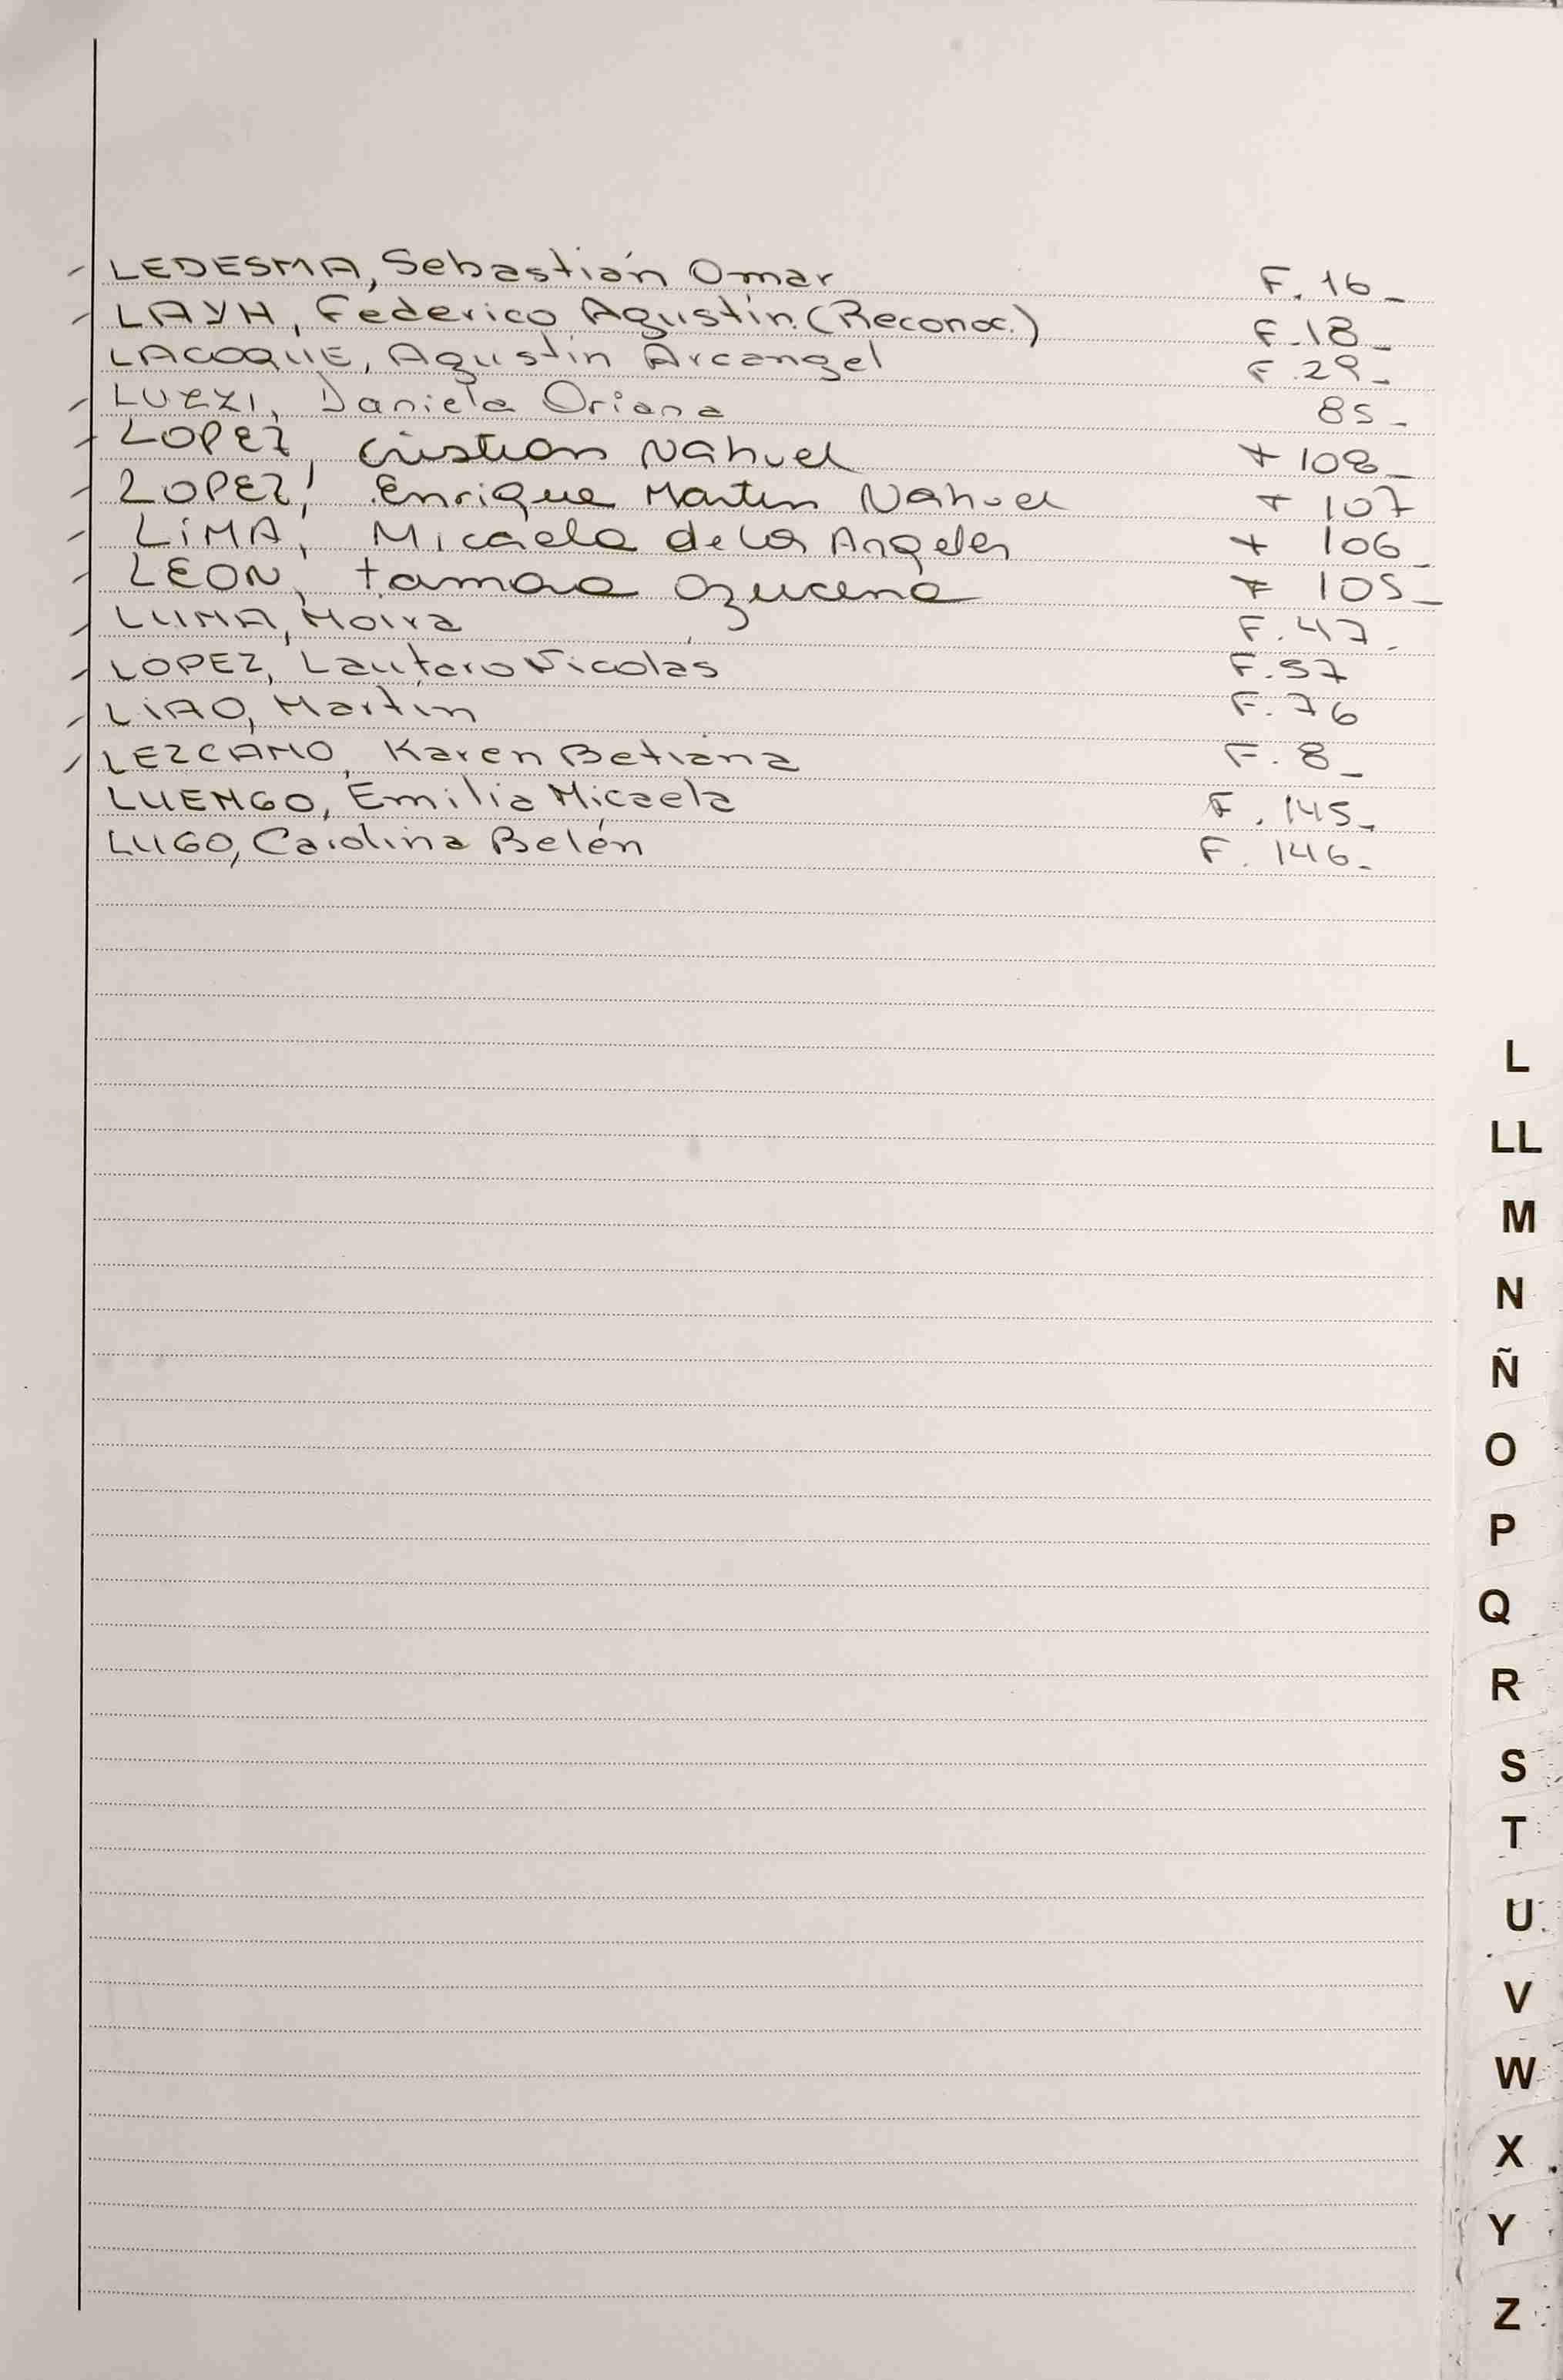 LEDESMA, Sebastián Omar F. 16_
LAYH, Federico Agustín (Reconoc.) F. 18_
LACOQUE, Agustín Arcangel F. 29_
LUZZI, Daniela Oriana 85_
LOPEZ, Cristian Nahuel F 108_
LOPEZ, Enrique Martin Nahuel F 107
LiMA, Micaela de los Angeles F 106_
LEON, tamara Azucena F 105_
LUNA, Moira F. 47_
LOPEZ, Lautaro Nicolas F. 57
LiAO, Martín F. 76
LEZCANO, Karen Betiana F. 8_
LUENGO, Emilia Micaela F. 145_
LUGO, Carolina Belén F. 146_
L
LL
M
N
Ñ
O
P
Q
R
S
T
U
V
W
X
Y
Z